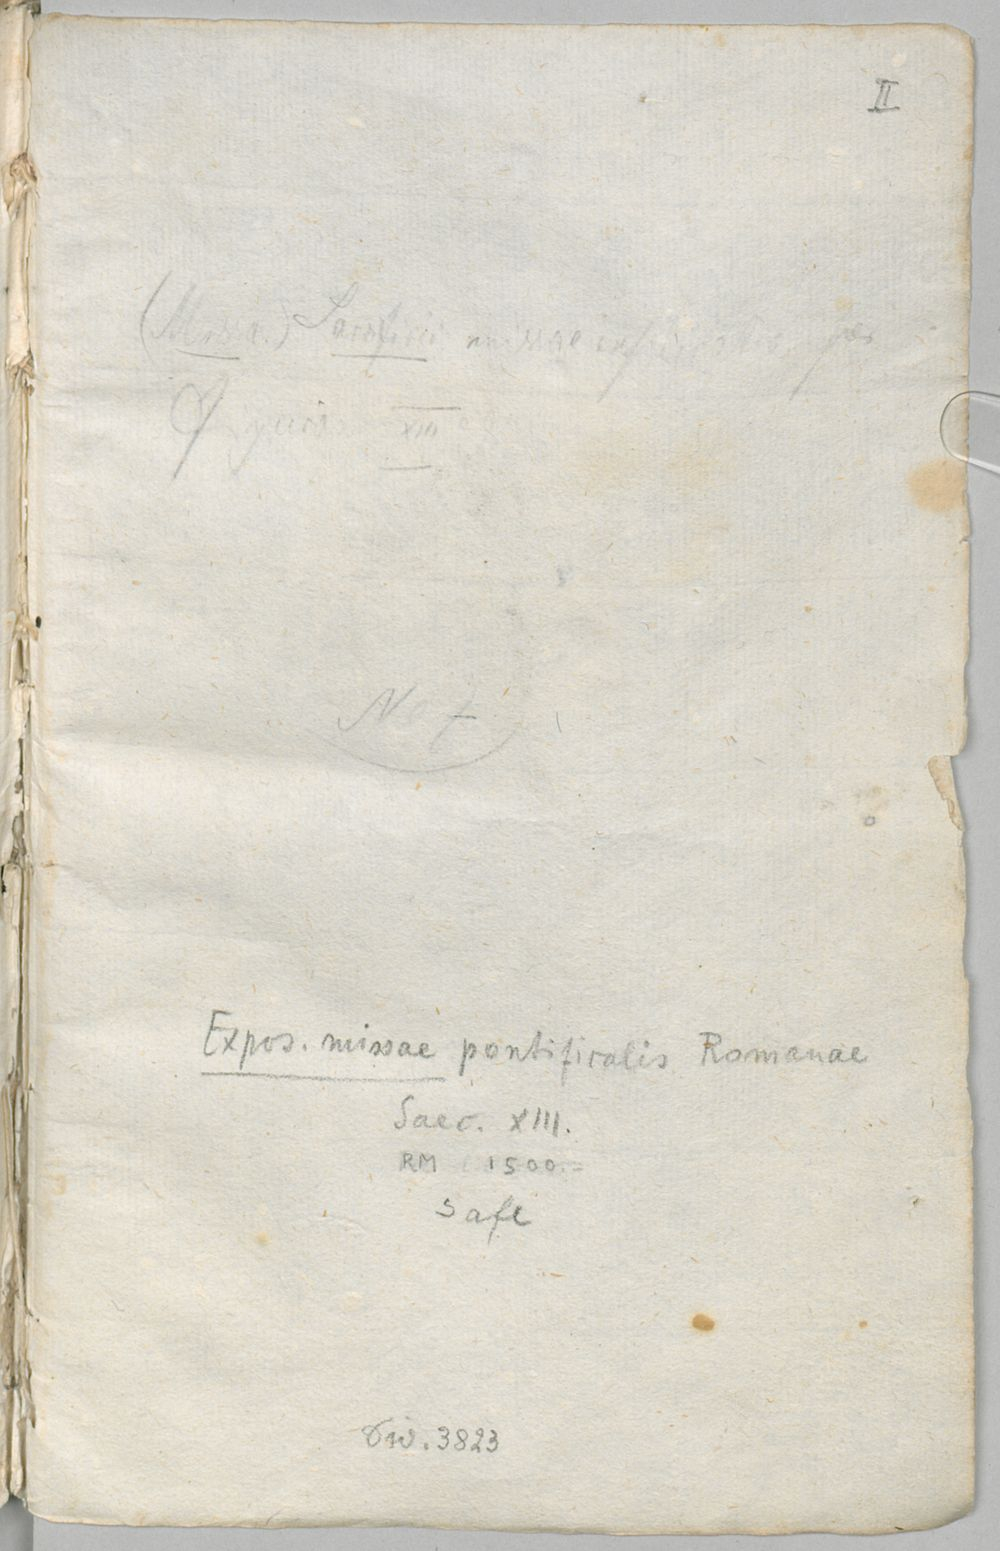 II
(Missa.) Sacrificii missae
XIII
No 7
Expos. missae pontificalis Romanae
Saec. XIII.
RM 1500.=
Safe
Div. 3823